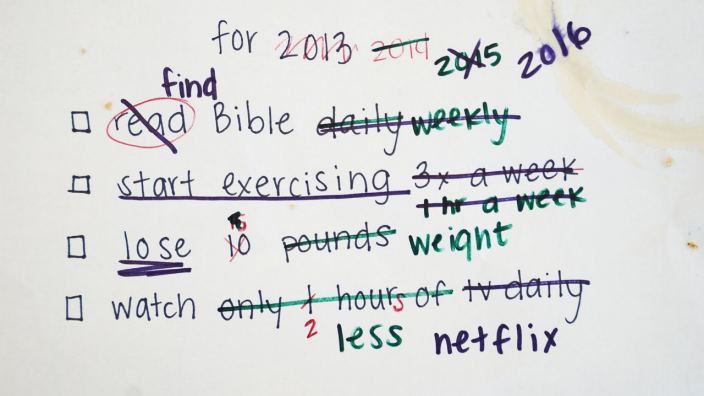 for 2013 2014 2015 2016
find
read Bible daily weekly
start exercising 3x a week
1 hr a week
lose 10 pounds weight
watch only 1 hours of tv daily
2 less netflix